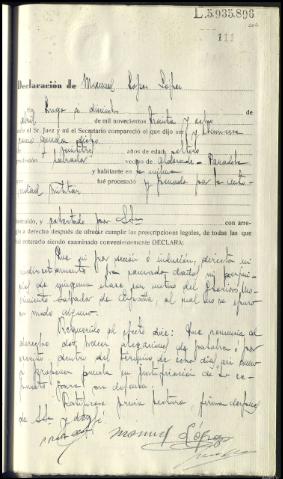 L.5935.896
111
Declaración de Manuel López López
En Lugo a diecisiete de
abril de mil novecientos treinta y ocho
ante el Sr. Juez y mi el Secretario compareció el que dijo ser y llamarse
como queda dicho
de y cuatro años de edad, soltero
profesión labrador vecino de Paradela
y habitante en la misma
fué procesado y penado por la autoridad
militar
enterado, y exhortado por S.Sª con arreglo
a derecho después de ofrecer cumplir las prescripciones legales, de todas las que
fué enterado siendo examinado convenientemente DECLARA:
Que ni por acción ó inducción, directa ni
indirectamente ha causado daños ni perjuicios
de ninguna clase con motivo del Glorioso Movimiento
Salvador de España, al cual no se opuso
en modo alguno.
Requerido al efecto dice: Que renuncia al
derecho de hacer alegaciones de palabra, ó por
escrito dentro del término de ocho días, así como
a proponer prueba en justificación de lo expuesto
para su defensa.
Ratifícase previa lectura, firma después
de S.Sª y doy fé.
Manuel López